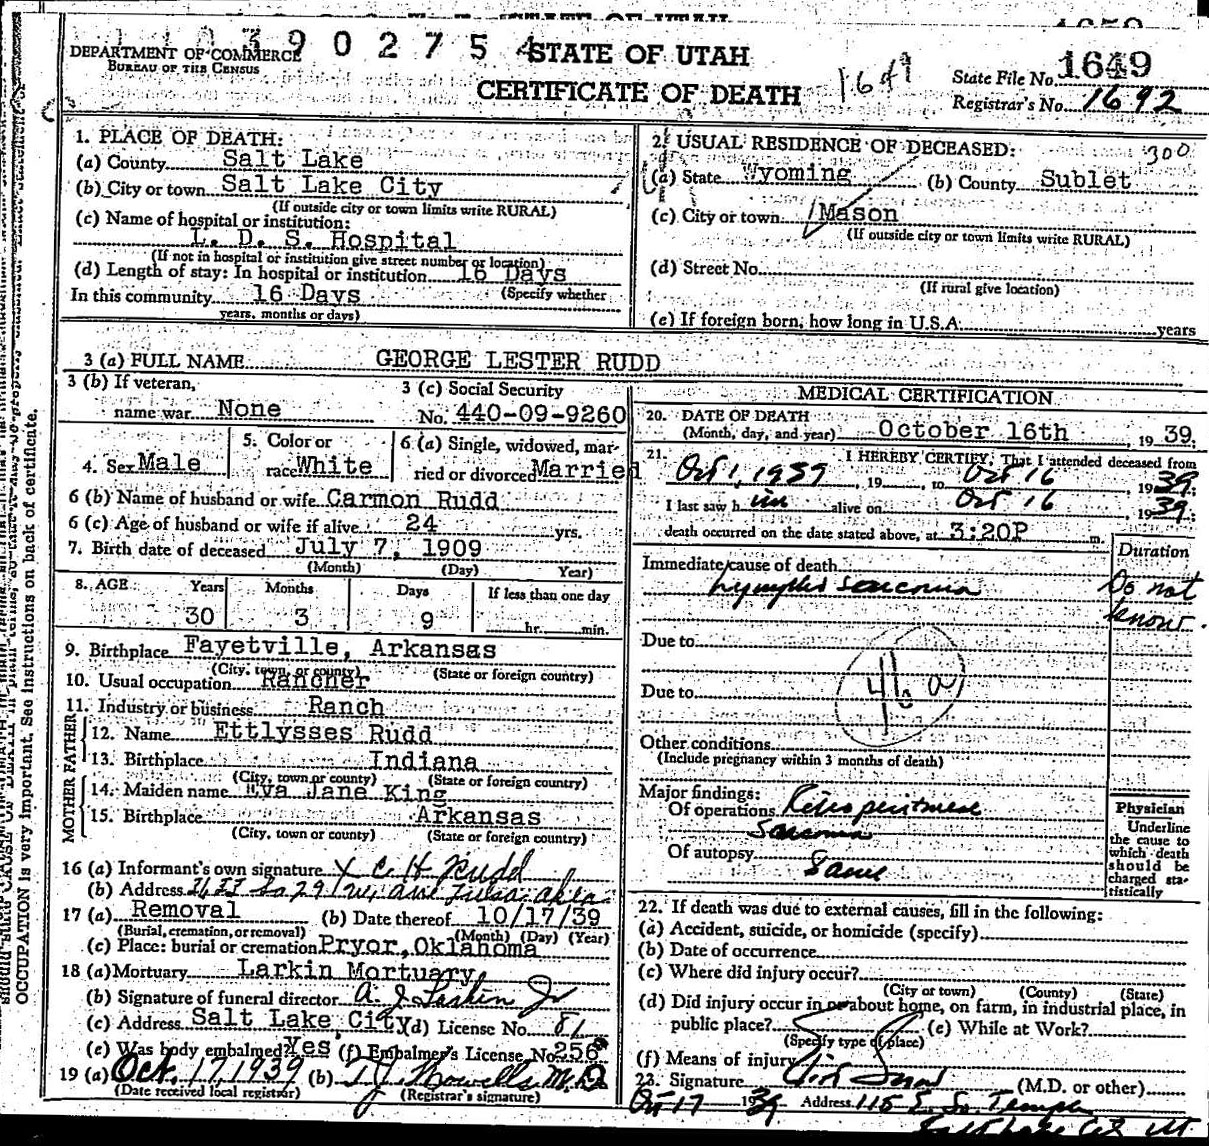 STATE OF UTAH
1 1 0 3 9 0 2 7 5 4
DEPARTMENT OF COMMERCE
BUREAU OF THE CENSUS
STATE OF UTAH
CERTIFICATE OF DEATH
1649
State File No. 1649
Registrar's No. 1692
1. PLACE OF DEATH:
(a) County Salt Lake
(b) City or town Salt Lake City
(If outside city or town limits write RURAL)
(c) Name of hospital or institution:
L. D. S. Hospital
(If not in hospital or institution give street number or location)
(d) Length of stay: In hospital or institution 16 Days
In this community 16 Days (Specify whether
years, months or days)
2. USUAL RESIDENCE OF DECEASED: 300
(a) State Wyoming (b) County Sublet
(c) City or town Mason
(If outside city or town limits write RURAL)
(d) Street No.
(If rural give location)
(e) If foreign born, how long in U.S.A. years
3 (a) FULL NAME GEORGE LESTER RUDD
3 (b) If veteran,
name war None
3 (c) Social Security
No. 440-09-9260
4. Sex Male
5. Color or
race White
6 (a) Single, widowed, mar-
ried or divorced Married
6 (b) Name of husband or wife Carmon Rudd
6 (c) Age of husband or wife if alive 24 yrs.
7. Birth date of deceased July 7, 1909
(Month) (Day) Year)
8. AGE Years Months Days If less than one day
30 3 9 hr. min.
9. Birthplace Fayetville, Arkansas
(City, town, or county) (State or foreign country)
10. Usual occupation Rancher
11. Industry or business Ranch
FATHER
12. Name Ettlysses Rudd
13. Birthplace Indiana
(City, town or county) (State or foreign country)
MOTHER
14. Maiden name Eva Jane King
15. Birthplace Arkansas
(City, town or county) (State or foreign country)
16 (a) Informant's own signature X C. H. Rudd
(b) Address So 29 Tulsa, Okla
17 (a) Removal (b) Date thereof 10/17/39
(Burial, cremation, or removal) (Month) (Day) (Year)
(c) Place: burial or cremation Pryor, Oklahoma
18 (a) Mortuary Larkin Mortuary
(b) Signature of funeral director A. J. Larkin Jr
(c) Address Salt Lake City (d) License No. 81
(e) Was body embalmed? Yes (f) Embalmer's License No. 256
19 (a) Oct. 17, 1939 (b) T. J. Howells M.D.
(Date received local registrar) (Registrar's signature)
MEDICAL CERTIFICATION
20. DATE OF DEATH
(Month, day, and year) October 16th, 1939.
21. I HEREBY CERTIFY, That I attended deceased from
Oct 1, 1939, 19 , to Oct 16, 1939.
I last saw him alive on Oct 16, 1939.
death occurred on the date stated above, at 3:20P m.
Duration
Immediate cause of death
Lympho sarcoma Do not
know.
Due to
46 a
Due to
Other conditions
(Include pregnancy within 3 months of death)
Major findings:
Of operations Retroperitoneal
Sarcoma
Of autopsy
Same
Physician
Underline
the cause to
which death
should be
charged sta-
tistically
22. If death was due to external causes, fill in the following:
(a) Accident, suicide, or homicide (specify)
(b) Date of occurrence
(c) Where did injury occur?
(City or town) (County) (State)
(d) Did injury occur in or about home, on farm, in industrial place, in
public place? (e) While at Work?
(Specify type of place)
(f) Means of injury
23. Signature (M.D. or other)
Oct 17 1939 Address 115 E. So. Temple
Salt Lake City Ut
OCCUPATION is very important. See instructions on back of certificate.